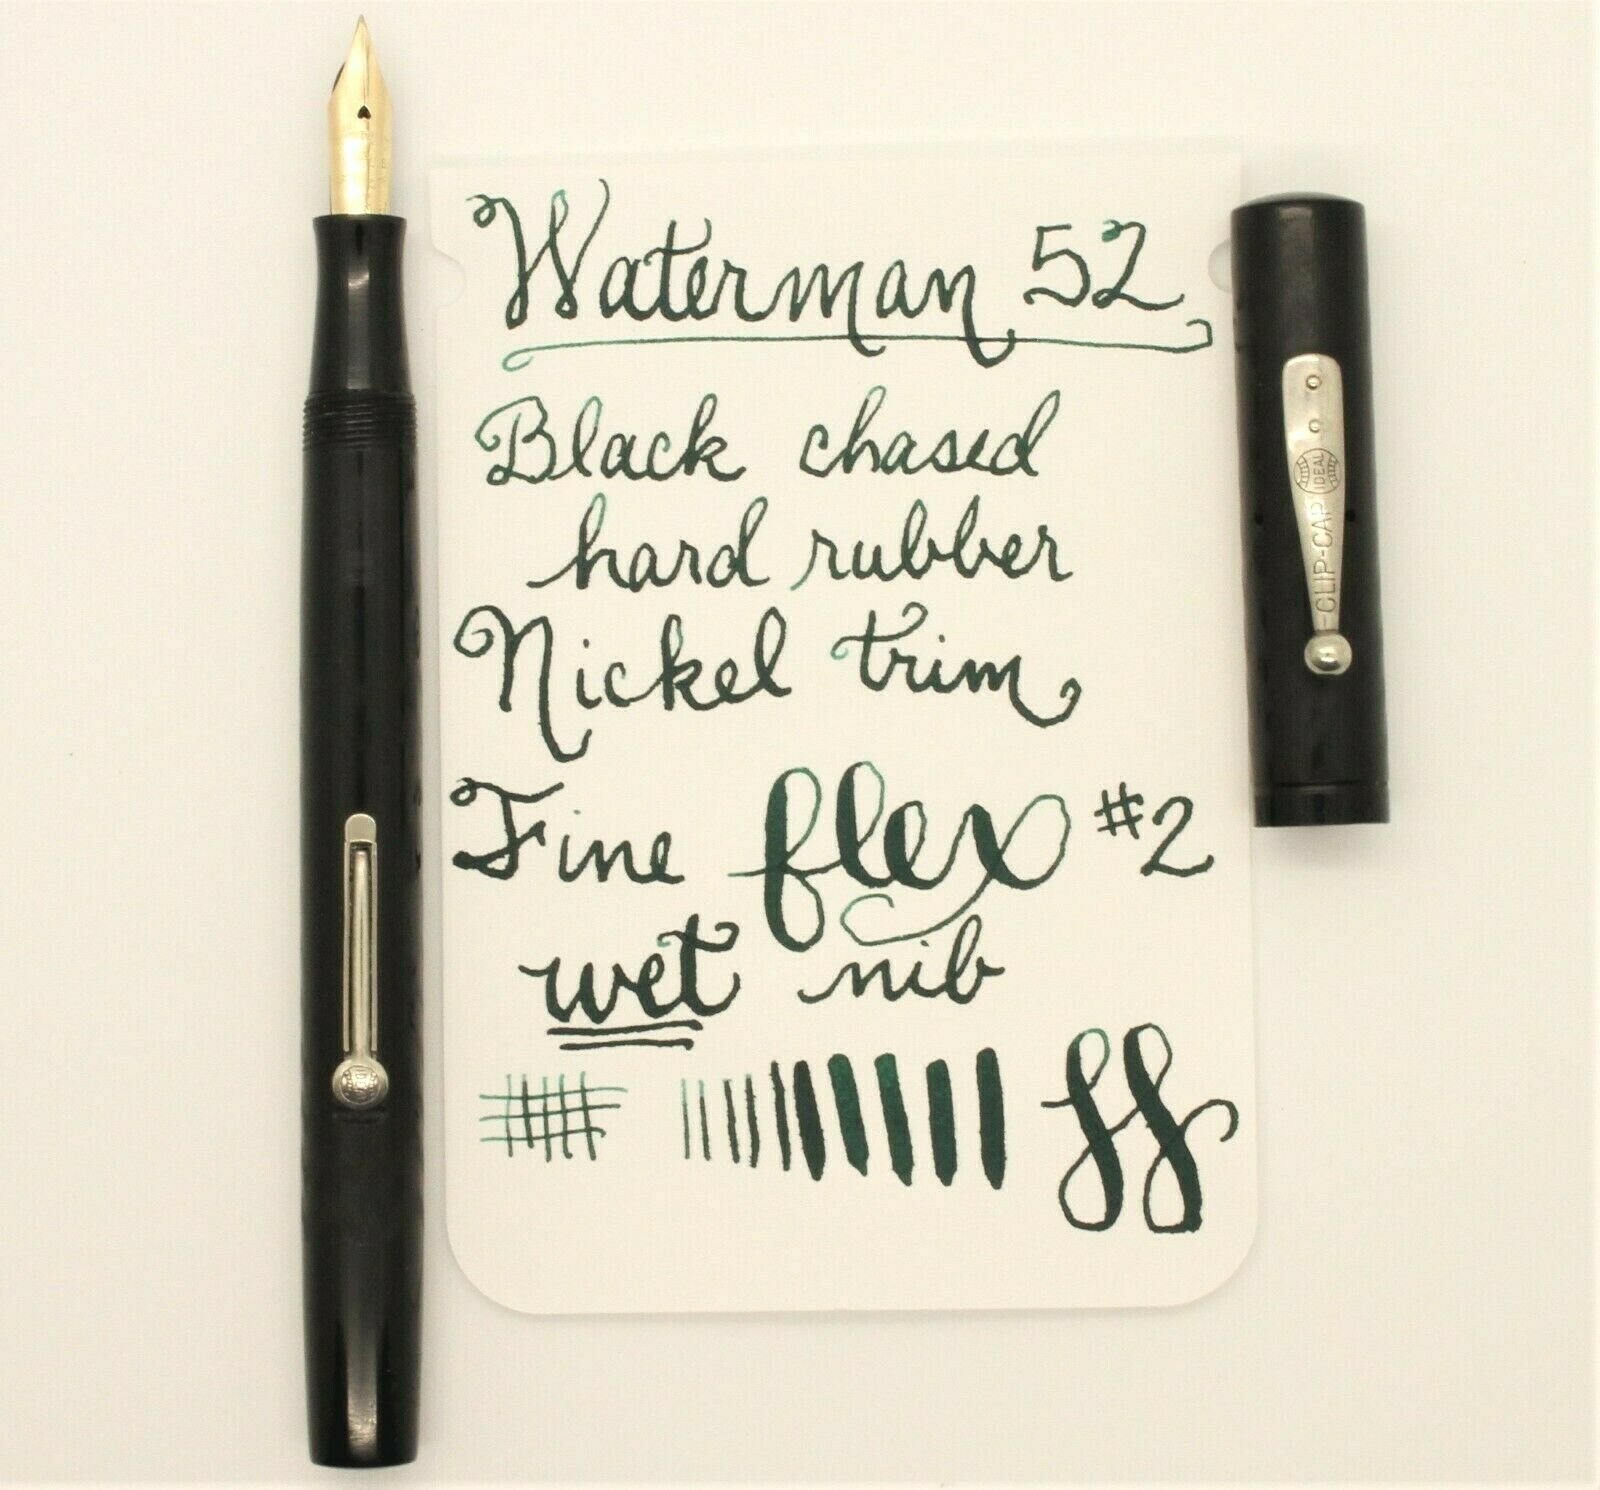 Waterman 52
Black chased
hard rubber
Nickel trim
Fine flex #2
wet nib
ff
IDEAL
-CLIP-CAP